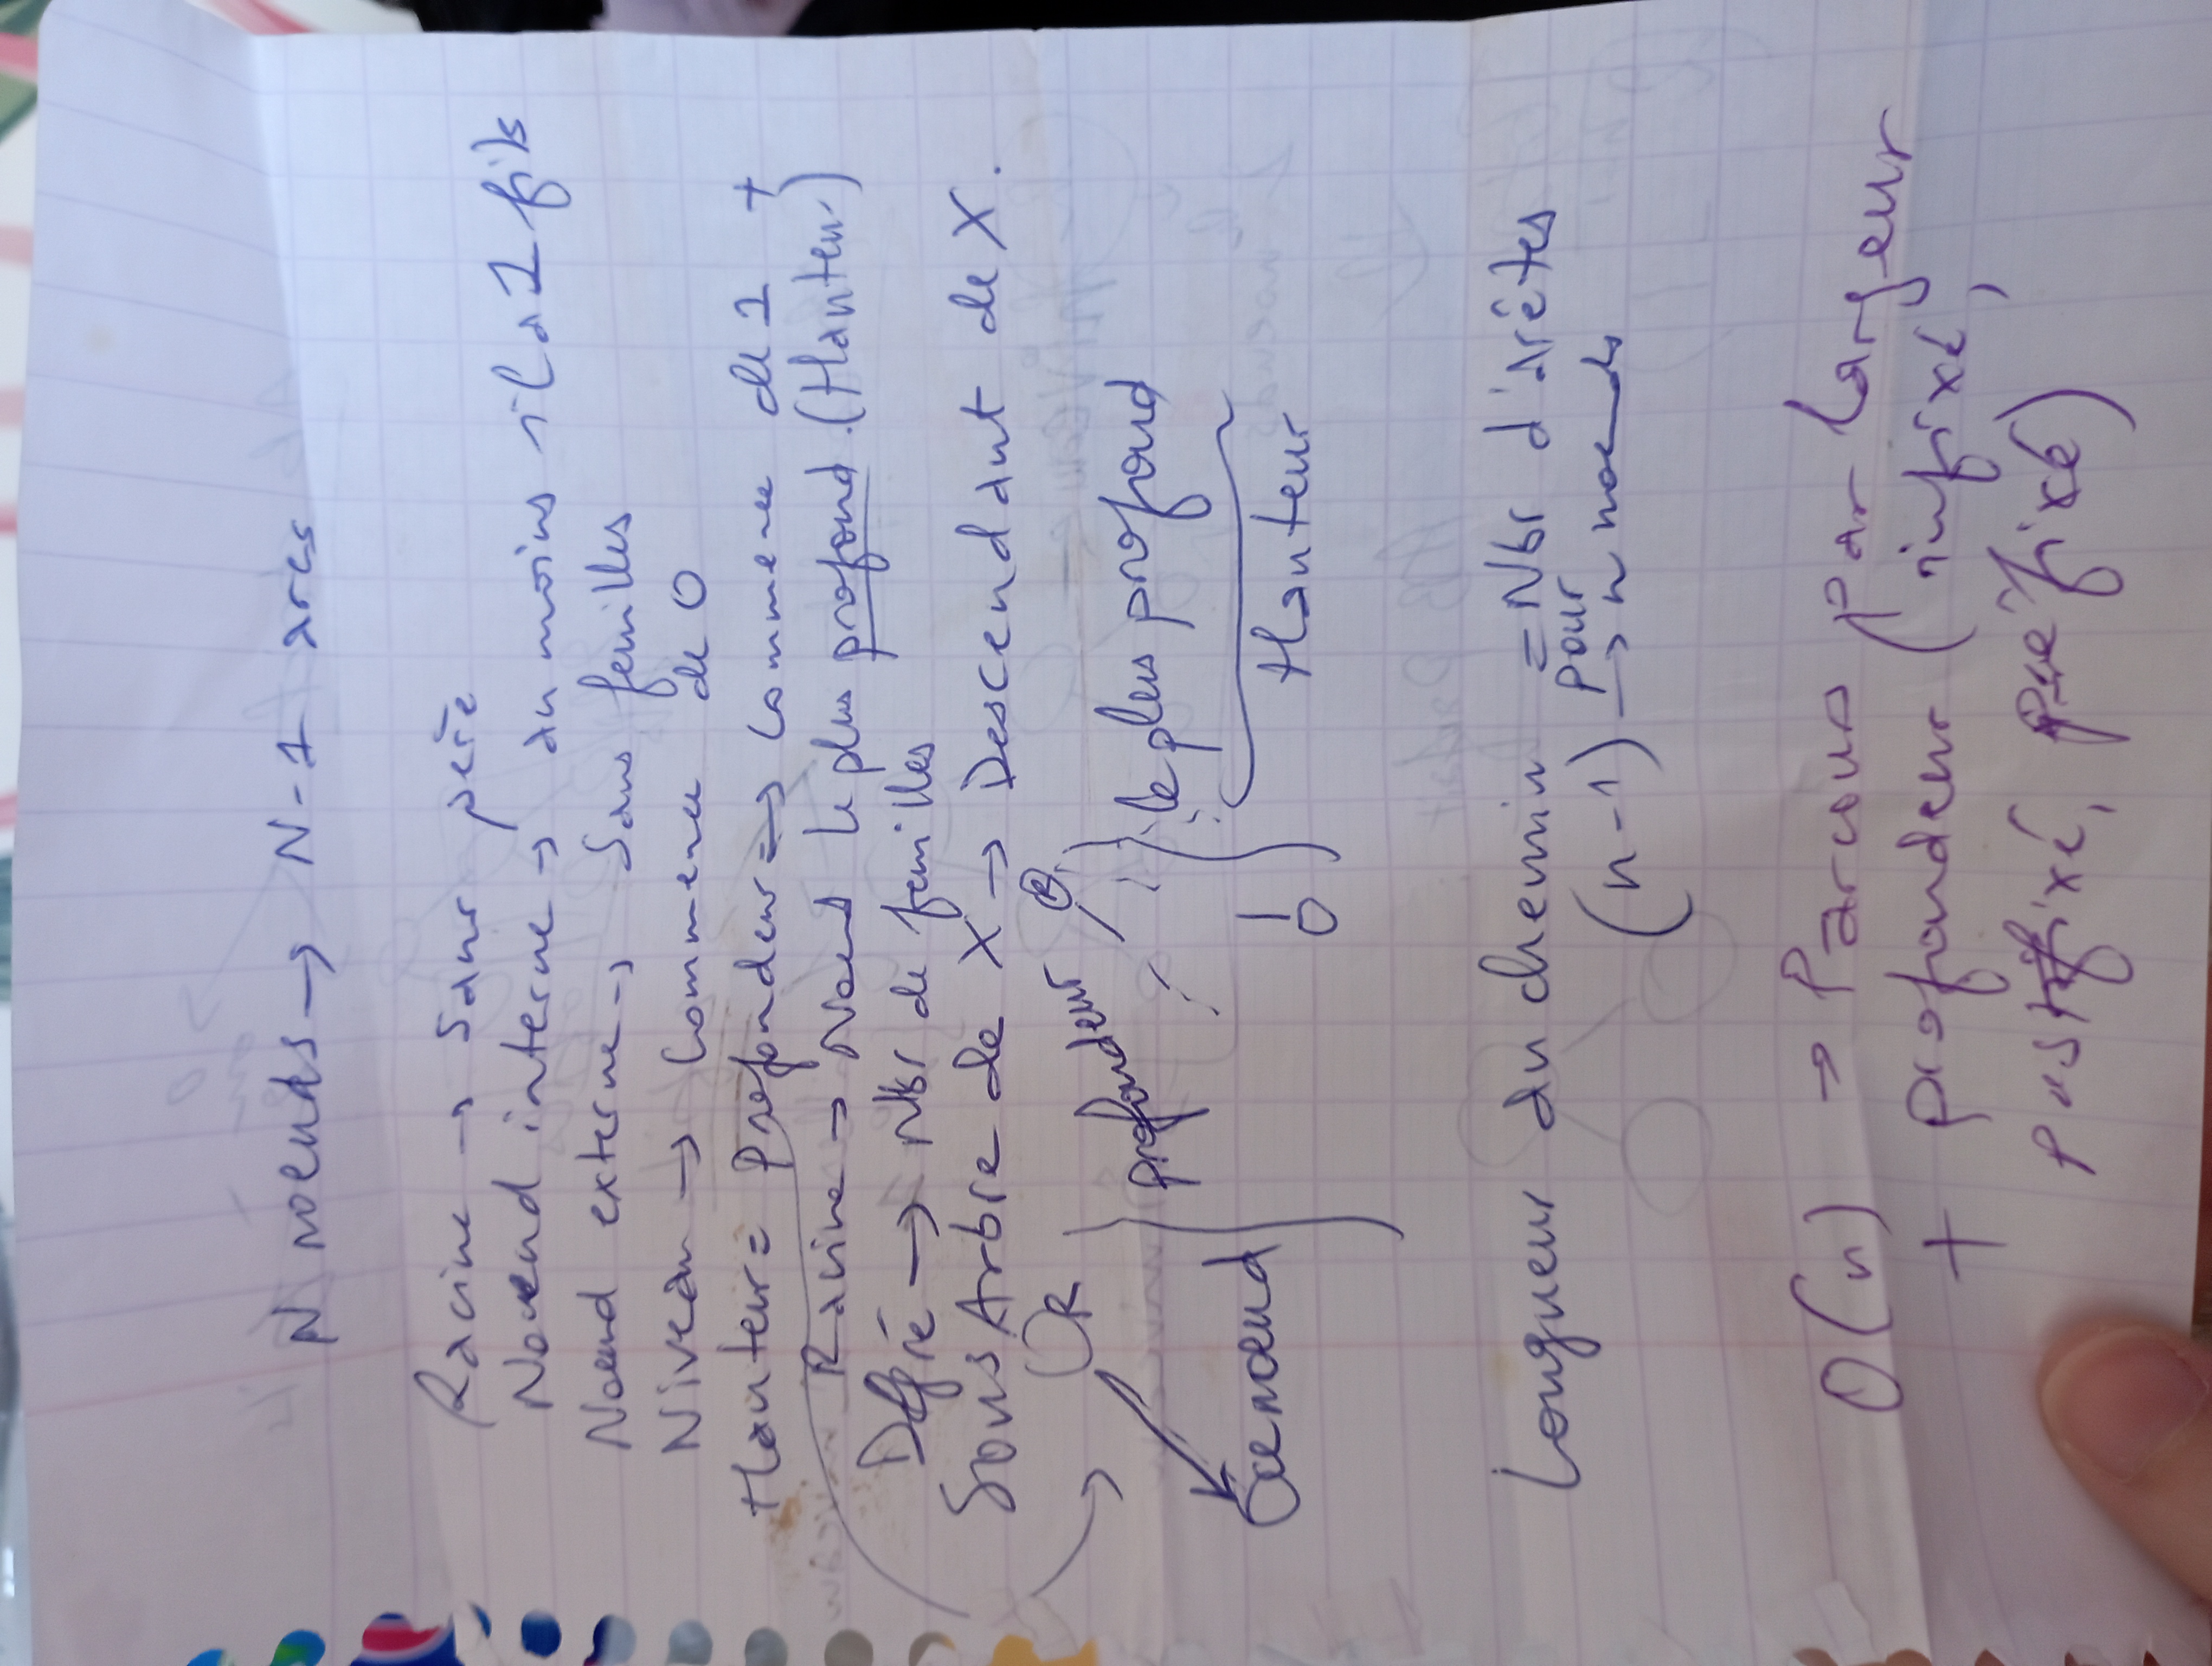 N noeuds → N-1 arcs
Racine → Sans père
Noeud interne → au moins il a 1 fils
Noeud externe → Sans feuilles
Niveau → Commence de 0
Hauteur = Profondeur => Commence de 1 +
Racine → Noeud le plus profond. (Hauteur)
Degré → Nbr de feuilles
Sous Arbre de X → Descendant de X.
R
profondeur
R
le plus profond
noeud
Hauteur
Longueur du chemin = Nbr d'arêtes
(n-1) pour → n noeuds
O(n) → Parcours par largeur
+ profondeur (infixé,
postfixé, préfixé)